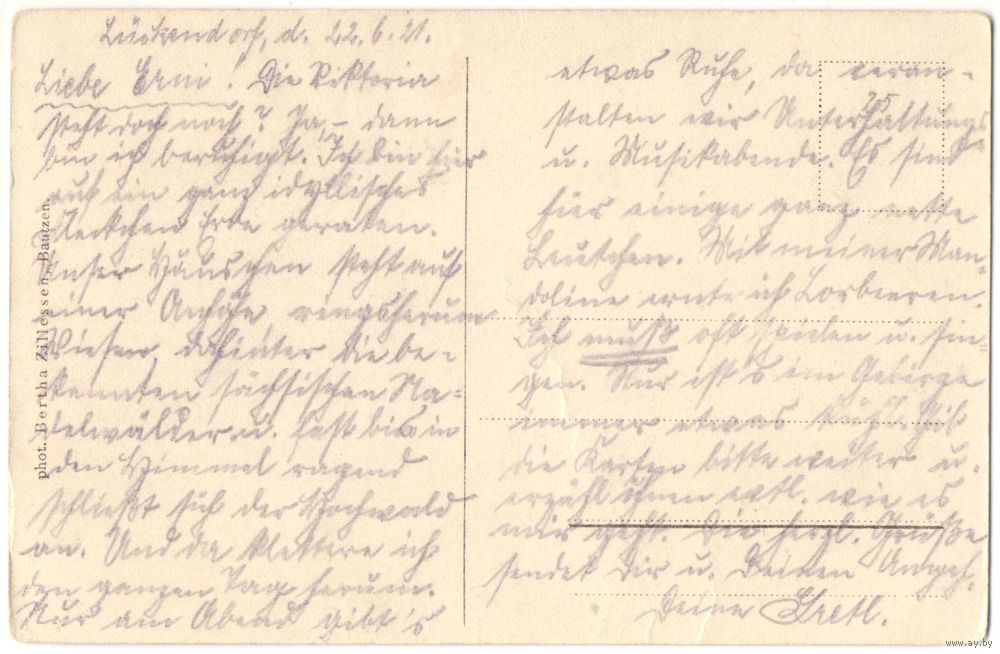 Lückendorf, d. 22.6.21.
Liebe Erni! Die Viktoria
steht doch noch? Ja, – dann
bin ich beruhigt. Ich bin hier
auf ein ganz idyllisches
Fleckchen Erde geraten.
Unser Häuschen steht auf
einer Anhöhe, ringsherum
Wiesen, dahinter die be-
kannten sächsischen Na-
delwälder u. fast bis in
den Himmel ragend
schließt sich der Hochwald
an. Und da klettere ich
den ganzen Tag herum.
Nur am Abend gibt's
etwas Ruhe, da veran-
stalten wir Unterhaltungs
u. Musikabende. Es sind
hier einige ganz nette
Leutchen. Mit meiner Man-
doline ernte ich Lorbeeren.
Ich muß oft spielen u. sin-
gen. Nur ist's im Gebirge
immer etwas kühl. Gib
die Karte bitte weiter u.
erzähl ihnen evtl. wie es
mir geht. Die herzl. Grüße
sendet Dir u. Deinen Angeh.
Deine Gretl.
25
phot. Bertha Zillessen, Bautzen.
www.ay.by